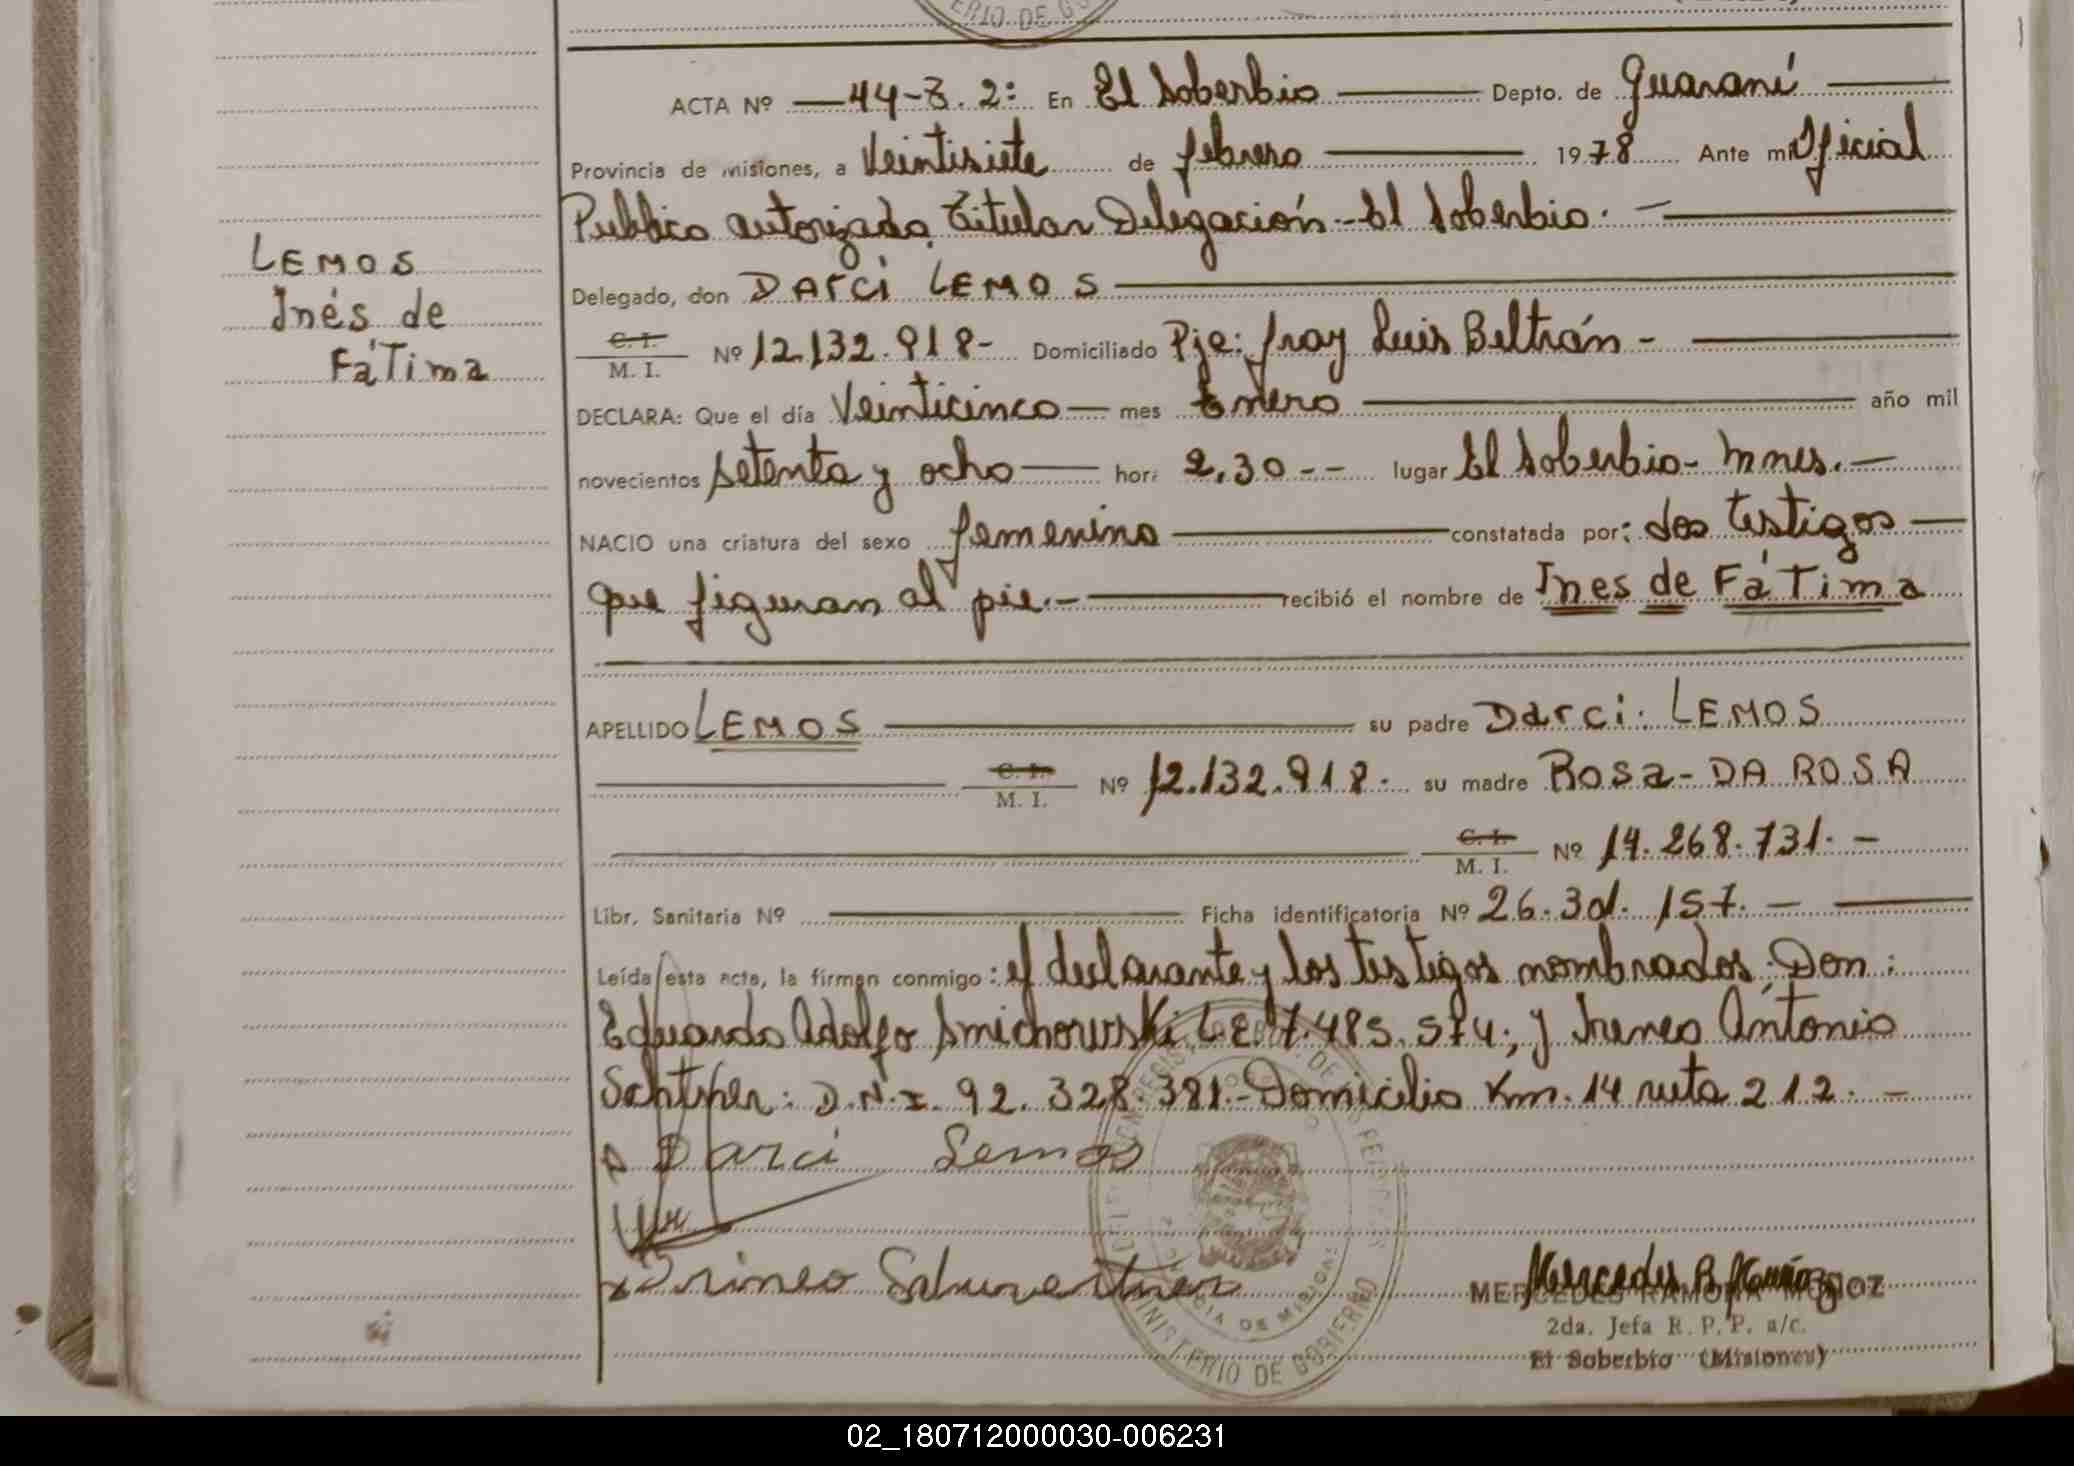 LEMOS
Inés de
FáTima
ACTA Nº 44-T. 2: En El Soberbio Depto. de Guaraní
Provincia de misiones, a Veintisiete de febrero 1978 Ante mi Oficial
Publico autorizado Titular Delegación - El Soberbio. -
Delegado, don DArci LEMOS
C. I.
M. I. Nº 12.132.918- Domiciliado Pje: fray Luis Beltrán -
DECLARA: Que el día Veinticinco mes Enero año mil
novecientos setenta y ocho hora 2.30 -- lugar El Soberbio- Mnes. -
NACIO una criatura del sexo femenino constatada por: dos testigos
que figuran al pie.- recibió el nombre de Ines de FáTima
APELLIDO LEMOS su padre Darci. LEMOS
C. I.
M. I. Nº 12.132.918. su madre Rosa - DA ROSA
C. I.
M. I. Nº 14.268.731. -
Libr. Sanitaria Nº Ficha identificatoria Nº 26.301.157. -
Leída esta acta, la firman conmigo: el declarante y los testigos nombrados: Don:
Eduardo Adolfo Smichowski L.E. 7.485.574; y Ireneo Antonio
D.N.I. 92.328.381.- Domicilio Km. 14 ruta 212. -
Darci Lemos
Mercedes R. Muñoz
MERCEDES RAMONA MUÑOZ
2da. Jefa R. P. P. a/c.
El Soberbio (Misiones)
MINISTERIO DE GOBIERNO
02_180712000030-006231